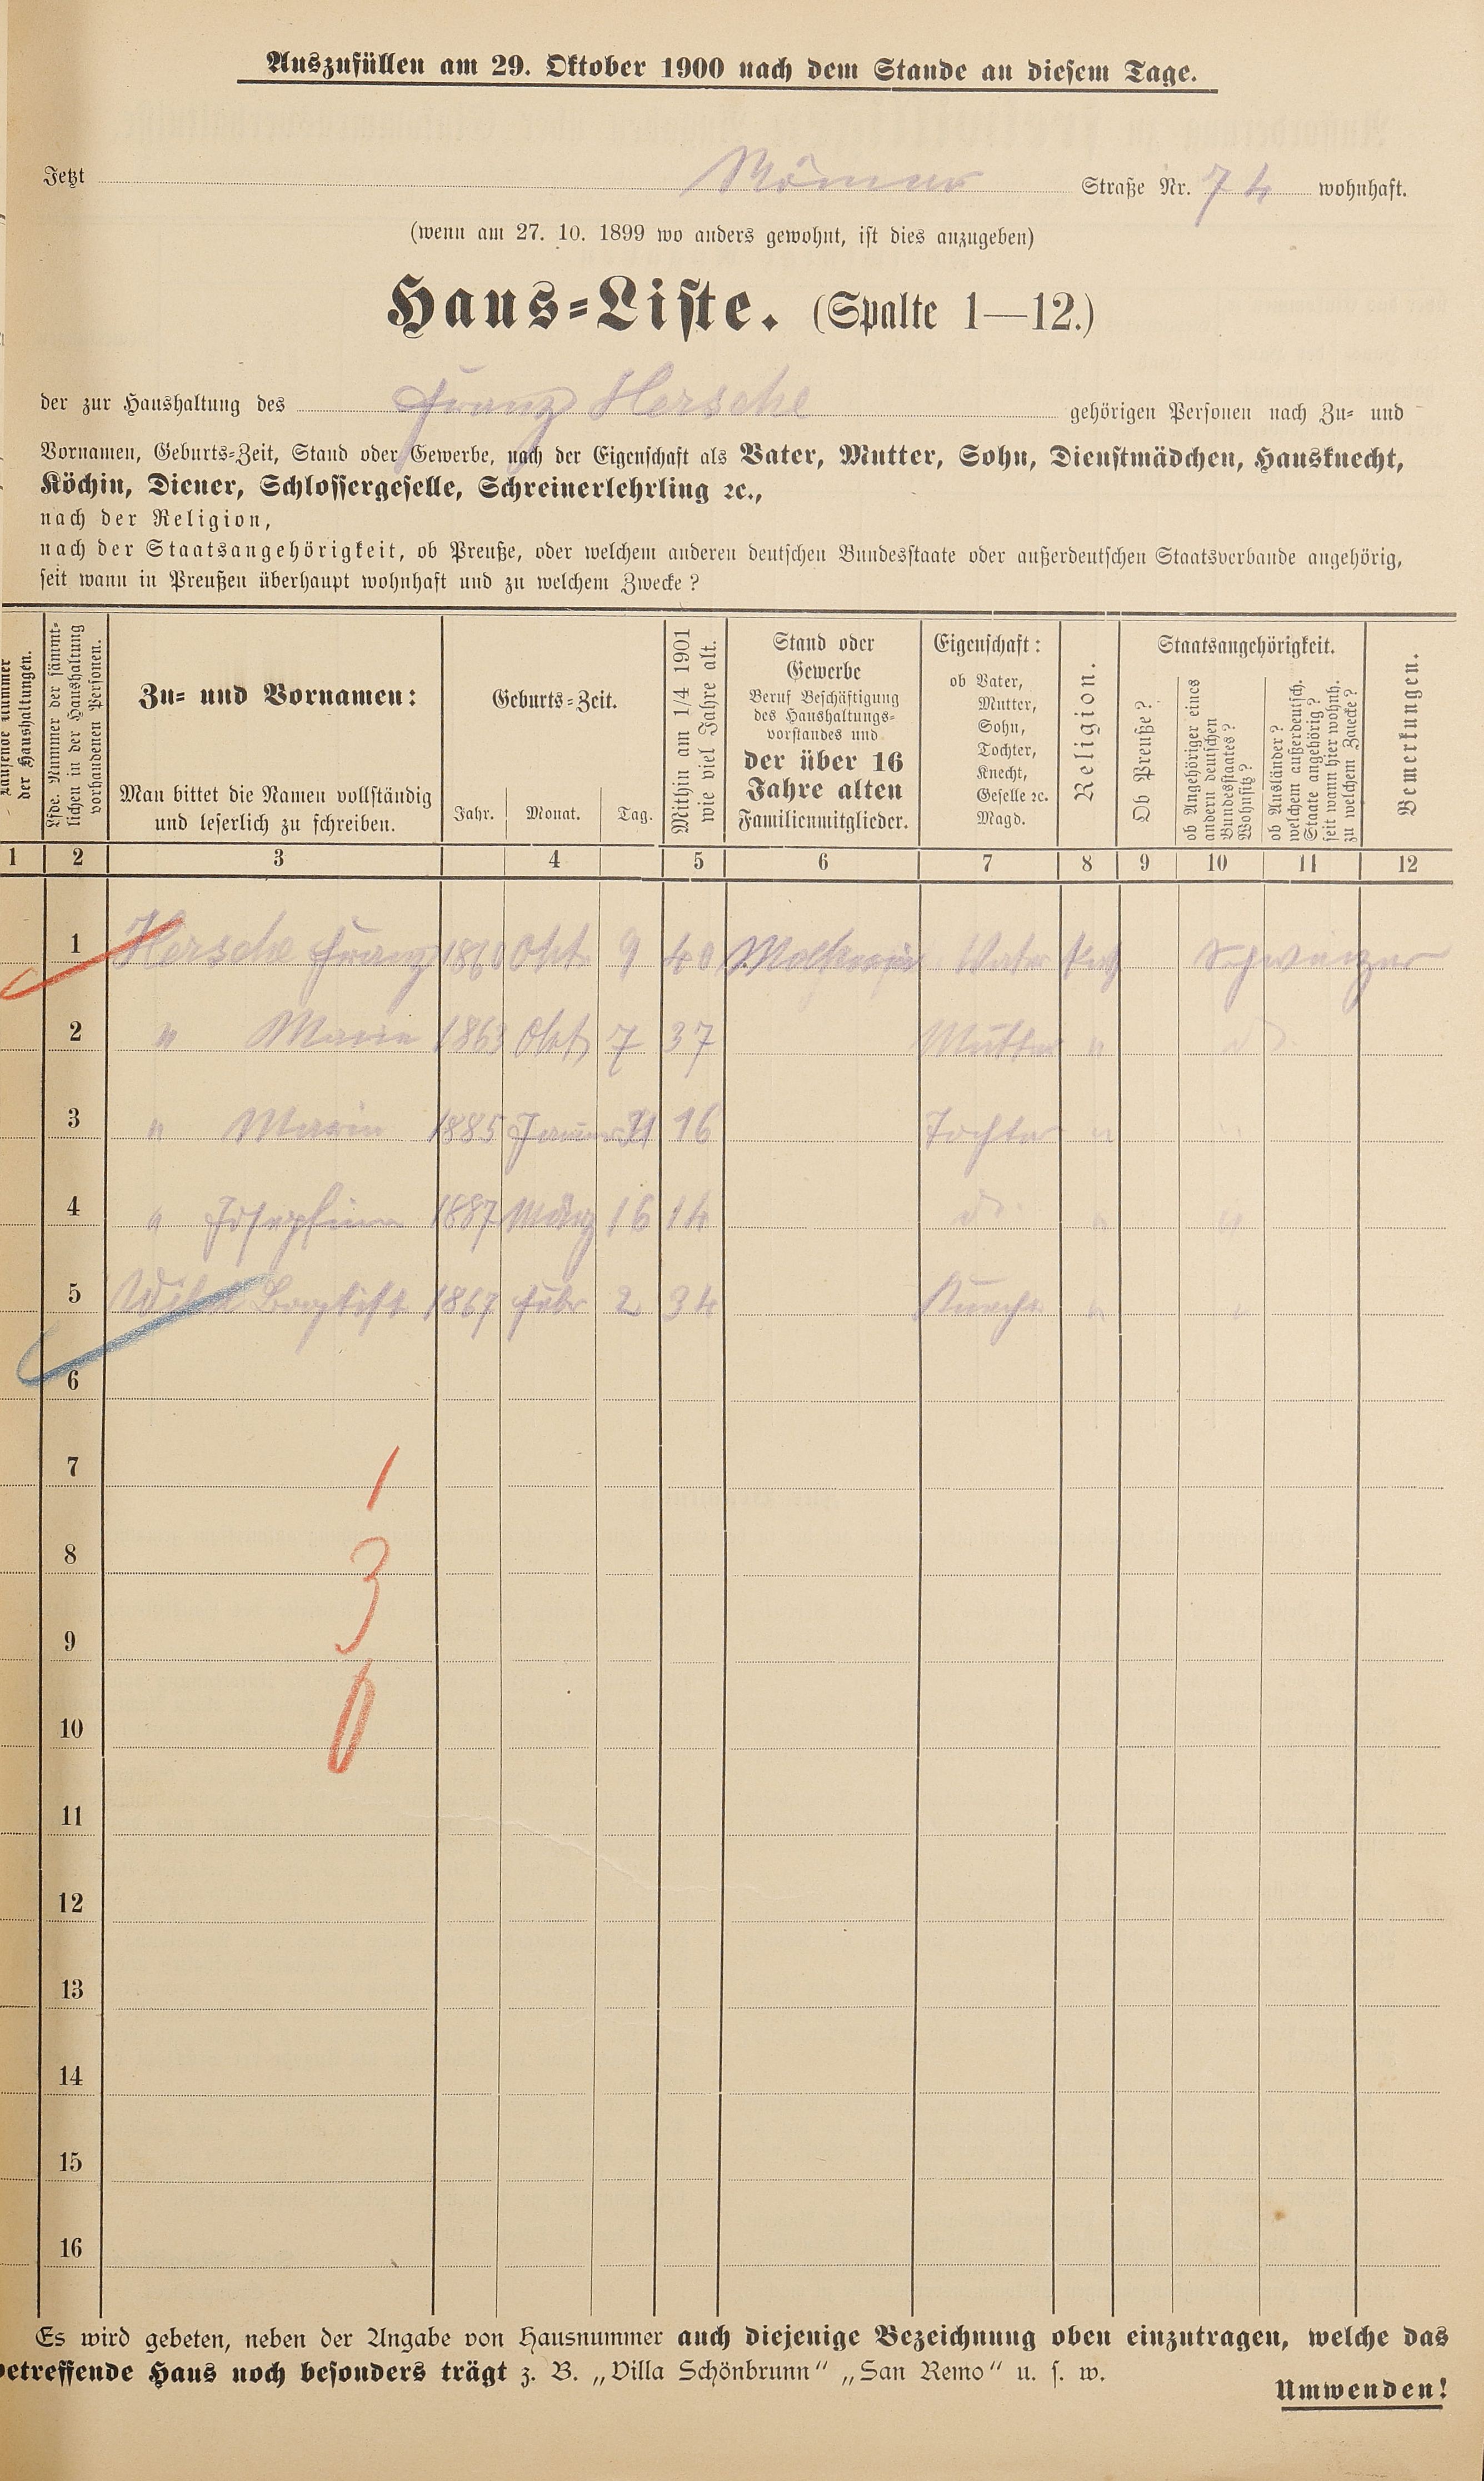 Auszufüllen am 29. Oktober 1900 nach dem Stande an diesem Tage.
Jetzt Römer Straße Nr. 74 wohnhaft.
(wenn am 27. 10. 1899 wo anders gewohnt, ist dies anzugeben)
Haus-Liste. (Spalte 1—12.)
der zur Haushaltung des Franz Hersche gehörigen Personen nach Zu- und
Vornamen, Geburts-Zeit, Stand oder Gewerbe, nach der Eigenschaft als Vater, Mutter, Sohn, Dienstmädchen, Hausknecht,
Köchin, Diener, Schlossergeselle, Schreinerlehrling ꝛc.,
nach der Religion,
nach der Staatsangehörigkeit, ob Preuße, oder welchem anderen deutschen Bundesstaate oder außerdeutschen Staatsverbande angehörig,
seit wann in Preußen überhaupt wohnhaft und zu welchem Zwecke?
Laufende Nummer
der Haushaltungen.
Lfde. Nummer der sämmt-
lichen in der Haushaltung
vorhandenen Personen.
Zu- und Vornamen:
Man bittet die Namen vollständig
und leserlich zu schreiben.
Geburts-Zeit.
Jahr. Monat. Tag.
Mithin am 1/4 1901
wie viel Jahre alt.
Stand oder
Gewerbe
Beruf Beschäftigung
des Haushaltungs-
vorstandes und
der über 16
Jahre alten
Familienmitglieder.
Eigenschaft:
ob Vater,
Mutter,
Sohn,
Tochter,
Knecht,
Geselle ꝛc.
Magd.
Religion.
Staatsangehörigkeit.
Ob Preuße?
ob Angehöriger eines
andern deutschen
Bundesstaates?
Wohnsitz?
ob Ausländer?
welchem außerdeutsch.
Staate angehörig?
seit wann hier wohnh.
zu welchem Zwecke?
Bemerkungen.
1 2 3 4 5 6 7 8 9 10 11 12
1 Hersche Franz 1860 Okt. 9 40 Vater kath Schweizer
2 " Maria 1863 Okt. 7 37 Mutter " do
3 " Maria 1885 Januar 31 16 Tochter " "
4 " Josephina 1887 März 16 14 do. " "
5 Baptist 1867 Febr 2 34 Knecht " "
6
7 1
8 3
9
10 0
11
12
13
14
15
16
Es wird gebeten, neben der Angabe von Hausnummer auch diejenige Bezeichnung oben einzutragen, welche das
betreffende Haus noch besonders trägt z. B. „Villa Schönbrunn“ „San Remo“ u. s. w.
Umwenden!